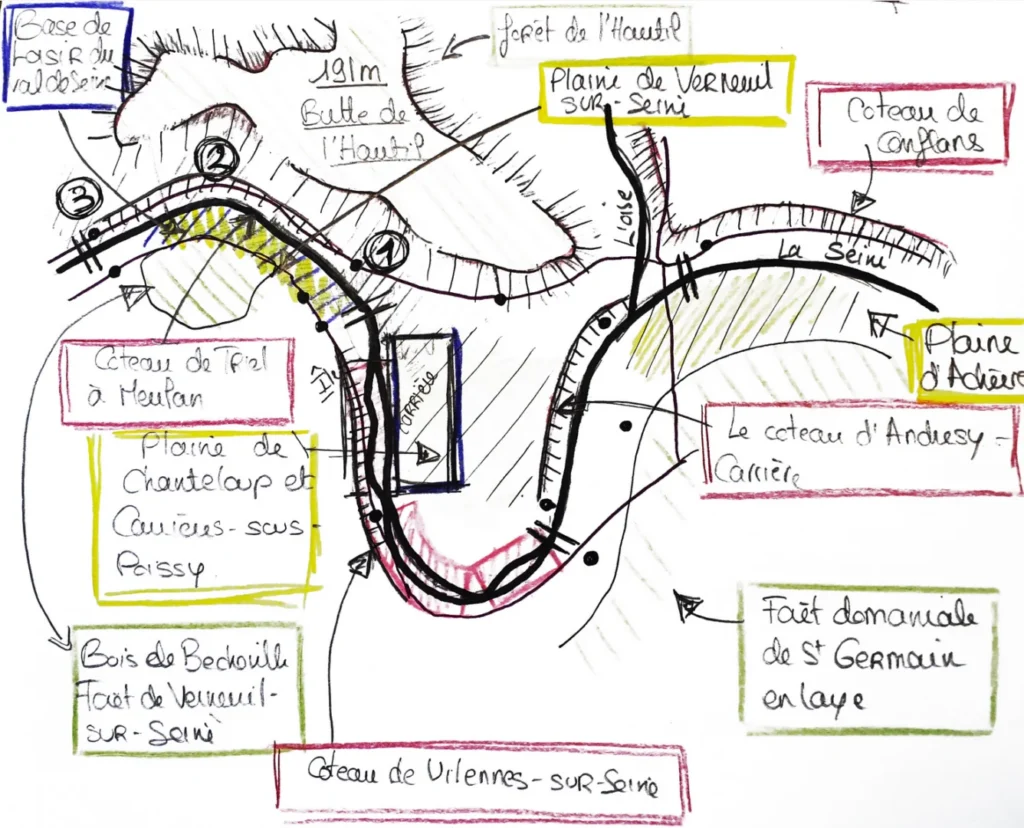 Base de
Loisir du
val de Seine
forêt de l'Hautil
191m
Butte de
l'Hautil
Plaine de Verneuil
SUR-Seine
Coteau de
Conflans
3
2
1
L'oise
La Seine
Coteau de Triel
à Meulan
Île
Carrière
Plaine
d'Achère
Le coteau d'Andresy -
Carrière
Plaine de
Chanteloup et
Carrières-sous-
Poissy
Bois de Bechevill
Foret de Verneuil-
SUR-Seine
Forêt domaniale
de St GERMAIN
en laye
Coteau de Vilennes-SUR-Seine